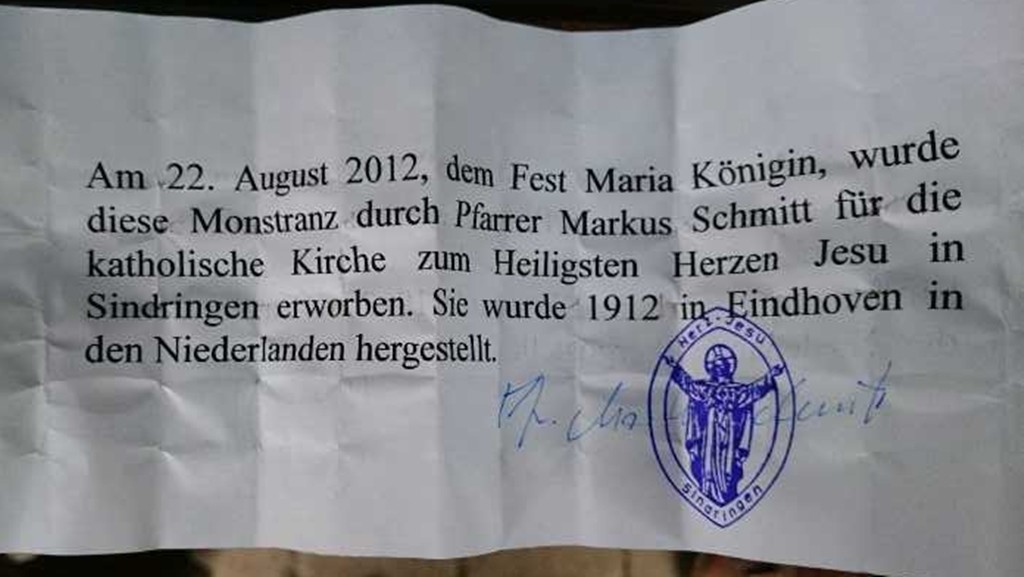 Am 22. August 2012, dem Fest Maria Königin, wurde
diese Monstranz durch Pfarrer Markus Schmitt für die
katholische Kirche zum Heiligsten Herzen Jesu in
Sindringen erworben. Sie wurde 1912 in Eindhoven in
den Niederlanden hergestellt.
Herz-Jesu
Sindringen